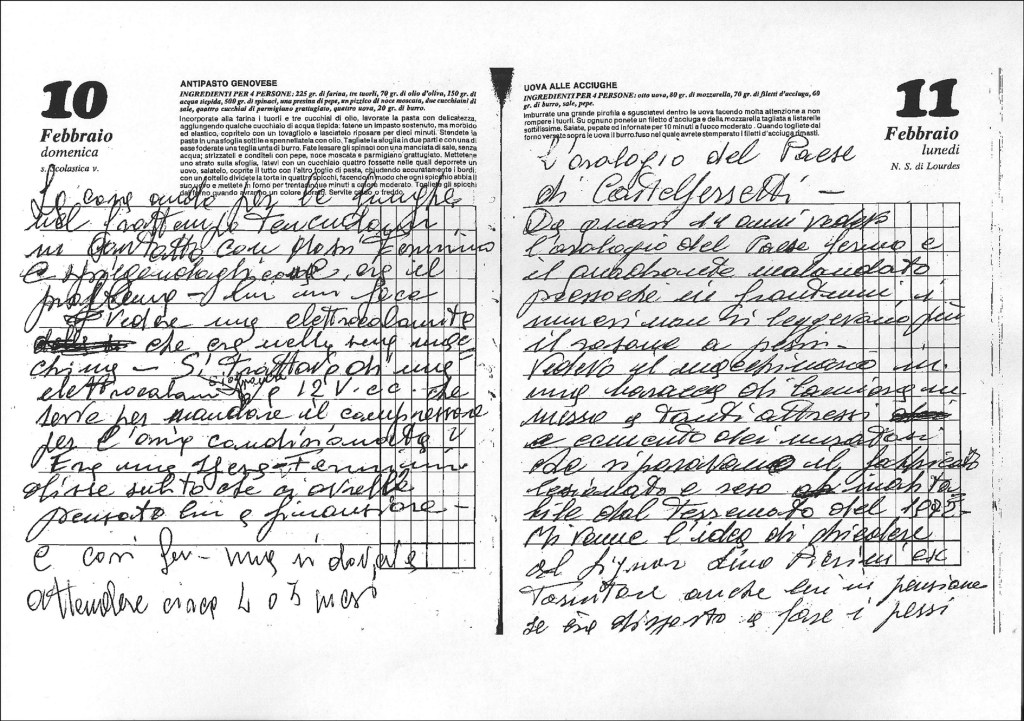 10
Febbraio
domenica
s. Scolastica v.
ANTIPASTO GENOVESE
INGREDIENTI PER 4 PERSONE: 225 gr. di farina, tre tuorli, 70 gr. di olio d'oliva, 150 gr. di
acqua tiepida, 500 gr. di spinaci, una presina di pepe, un pizzico di noce moscata, due cucchiaini di
sale, quattro cucchiai di parmigiano grattugiato, quattro uova, 20 gr. di burro.
Incorporate alla farina i tuorli e tre cucchiai di olio, lavorate la pasta con delicatezza,
aggiungendo qualche cucchiaio di acqua tiepida: fatene un impasto sostenuto, ma morbido
ed elastico, copritelo con un tovagliolo e lasciatelo riposare per dieci minuti. Stendete la
pasta in una sfoglia sottile e spennellatela con olio. Tagliate la sfoglia in due parti e con una di
esse foderate una teglia unta di burro. Fate lessare gli spinaci con una manciata di sale, senza
acqua; strizzateli e conditeli con pepe, noce moscata e parmigiano grattugiato. Mettetene
uno strato sulla sfoglia, fatevi con un cucchiaio quattro fossette nelle quali deporrete un
uovo, salatelo, coprite il tutto con l'altro foglio di pasta, chiudendo accuratamente i bordi.
con un coltello dividete la torta in quattro spicchi, facendo in modo che ogni spicchio abbia il
suo uovo e mettete in forno per trenta minuti a calore moderato. Togliete gli spicchi
dal forno quando avranno un colore Servite caldo o freddo.
La cosa andò per le lunghe
nel frattempo tenendomi
in contatto con Femmino
e spiegandogli come era il
problema - lui mi fece
vedere una elettrocalamita
che era nella sua mac
china - Si trattava di una
elettrocalamita a 12 V. c.c. che
serve per mandare il compressore
per l'aria condizionata
Era una Femmino
disse subito che ci avrebbe
pensato lui a
e così fu - ma si dovette
attendere circa 4 o 5 mesi
UOVA ALLE ACCIUGHE
INGREDIENTI PER 4 PERSONE: otto uova, 80 gr. di mozzarella, 70 gr. di filetti d'acciuga, 60
gr. di burro, sale, pepe.
Imburrate una grande pirofila e sgusciatevi dentro le uova facendo molta attenzione a non
rompere i tuorli. Su ognuno ponete un filetto d'acciuga e della mozzarella tagliata a listarelle
sottilissime. Salate, pepate ed infornate per 10 minuti a fuoco moderato. Quando togliete dal
forno versate sopra le uova il burro fuso nel quale avrete stemperato i filetti d'acciuga rimasti.
11
Febbraio
lunedì
N. S. di Lourdes
L'orologio del Paese
di Castelferretti -
Da quasi 14 anni vedevo
l'orologio del Paese fermo e
il quadrante malandato
pressoché in frantumi, i
numeri non si leggevano più
il rosone a pezzi -
Vedevo il macchinario in
una baracca di lamiera im
messo a tanti attrezzi
e cemento dei muratori
che riparavano il fabbricato
lesionato e reso inabita
bile dal terremoto del
mi venne l'idea di chiedere
al signor Dino Pierini ex
tornitore anche lui in pensione
se era disposto a fare i pezzi